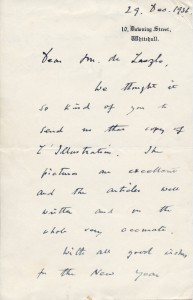 29. Dec. 1936.
10, Downing Street,
Whitehall.
Dear Mr. de Laszlo,
We thought it
so kind of you to
send us this copy of
L'Illustration. The
pictures are excellent
and the articles well
written and on the
whole very accurate.
With all good wishes
for the New Year